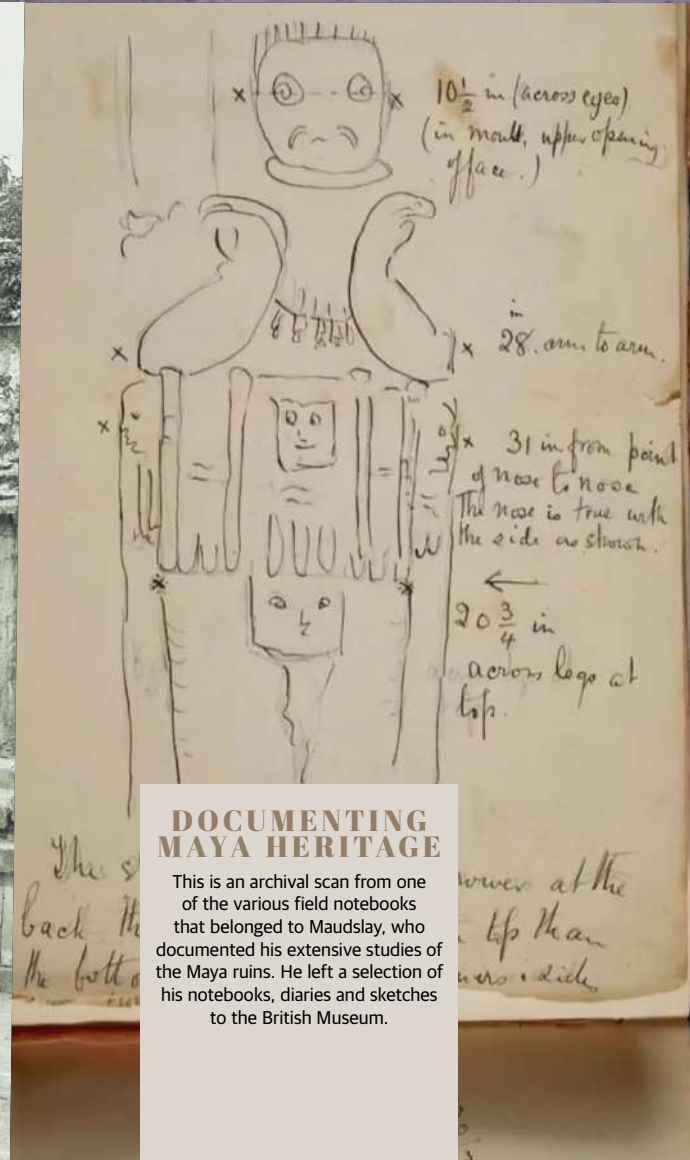 10 1/2 in (across eyes)
(in mould, upper opening
of face.)
in
28. arm to arm.
31 in from point
of nose to nose
The nose is true with
the side as shown.
←
20 3/4 in
across legs at
top.
The
back
the
at the
top than
side
DOCUMENTING
MAYA HERITAGE
This is an archival scan from one
of the various field notebooks
that belonged to Maudslay, who
documented his extensive studies of
the Maya ruins. He left a selection of
his notebooks, diaries and sketches
to the British Museum.